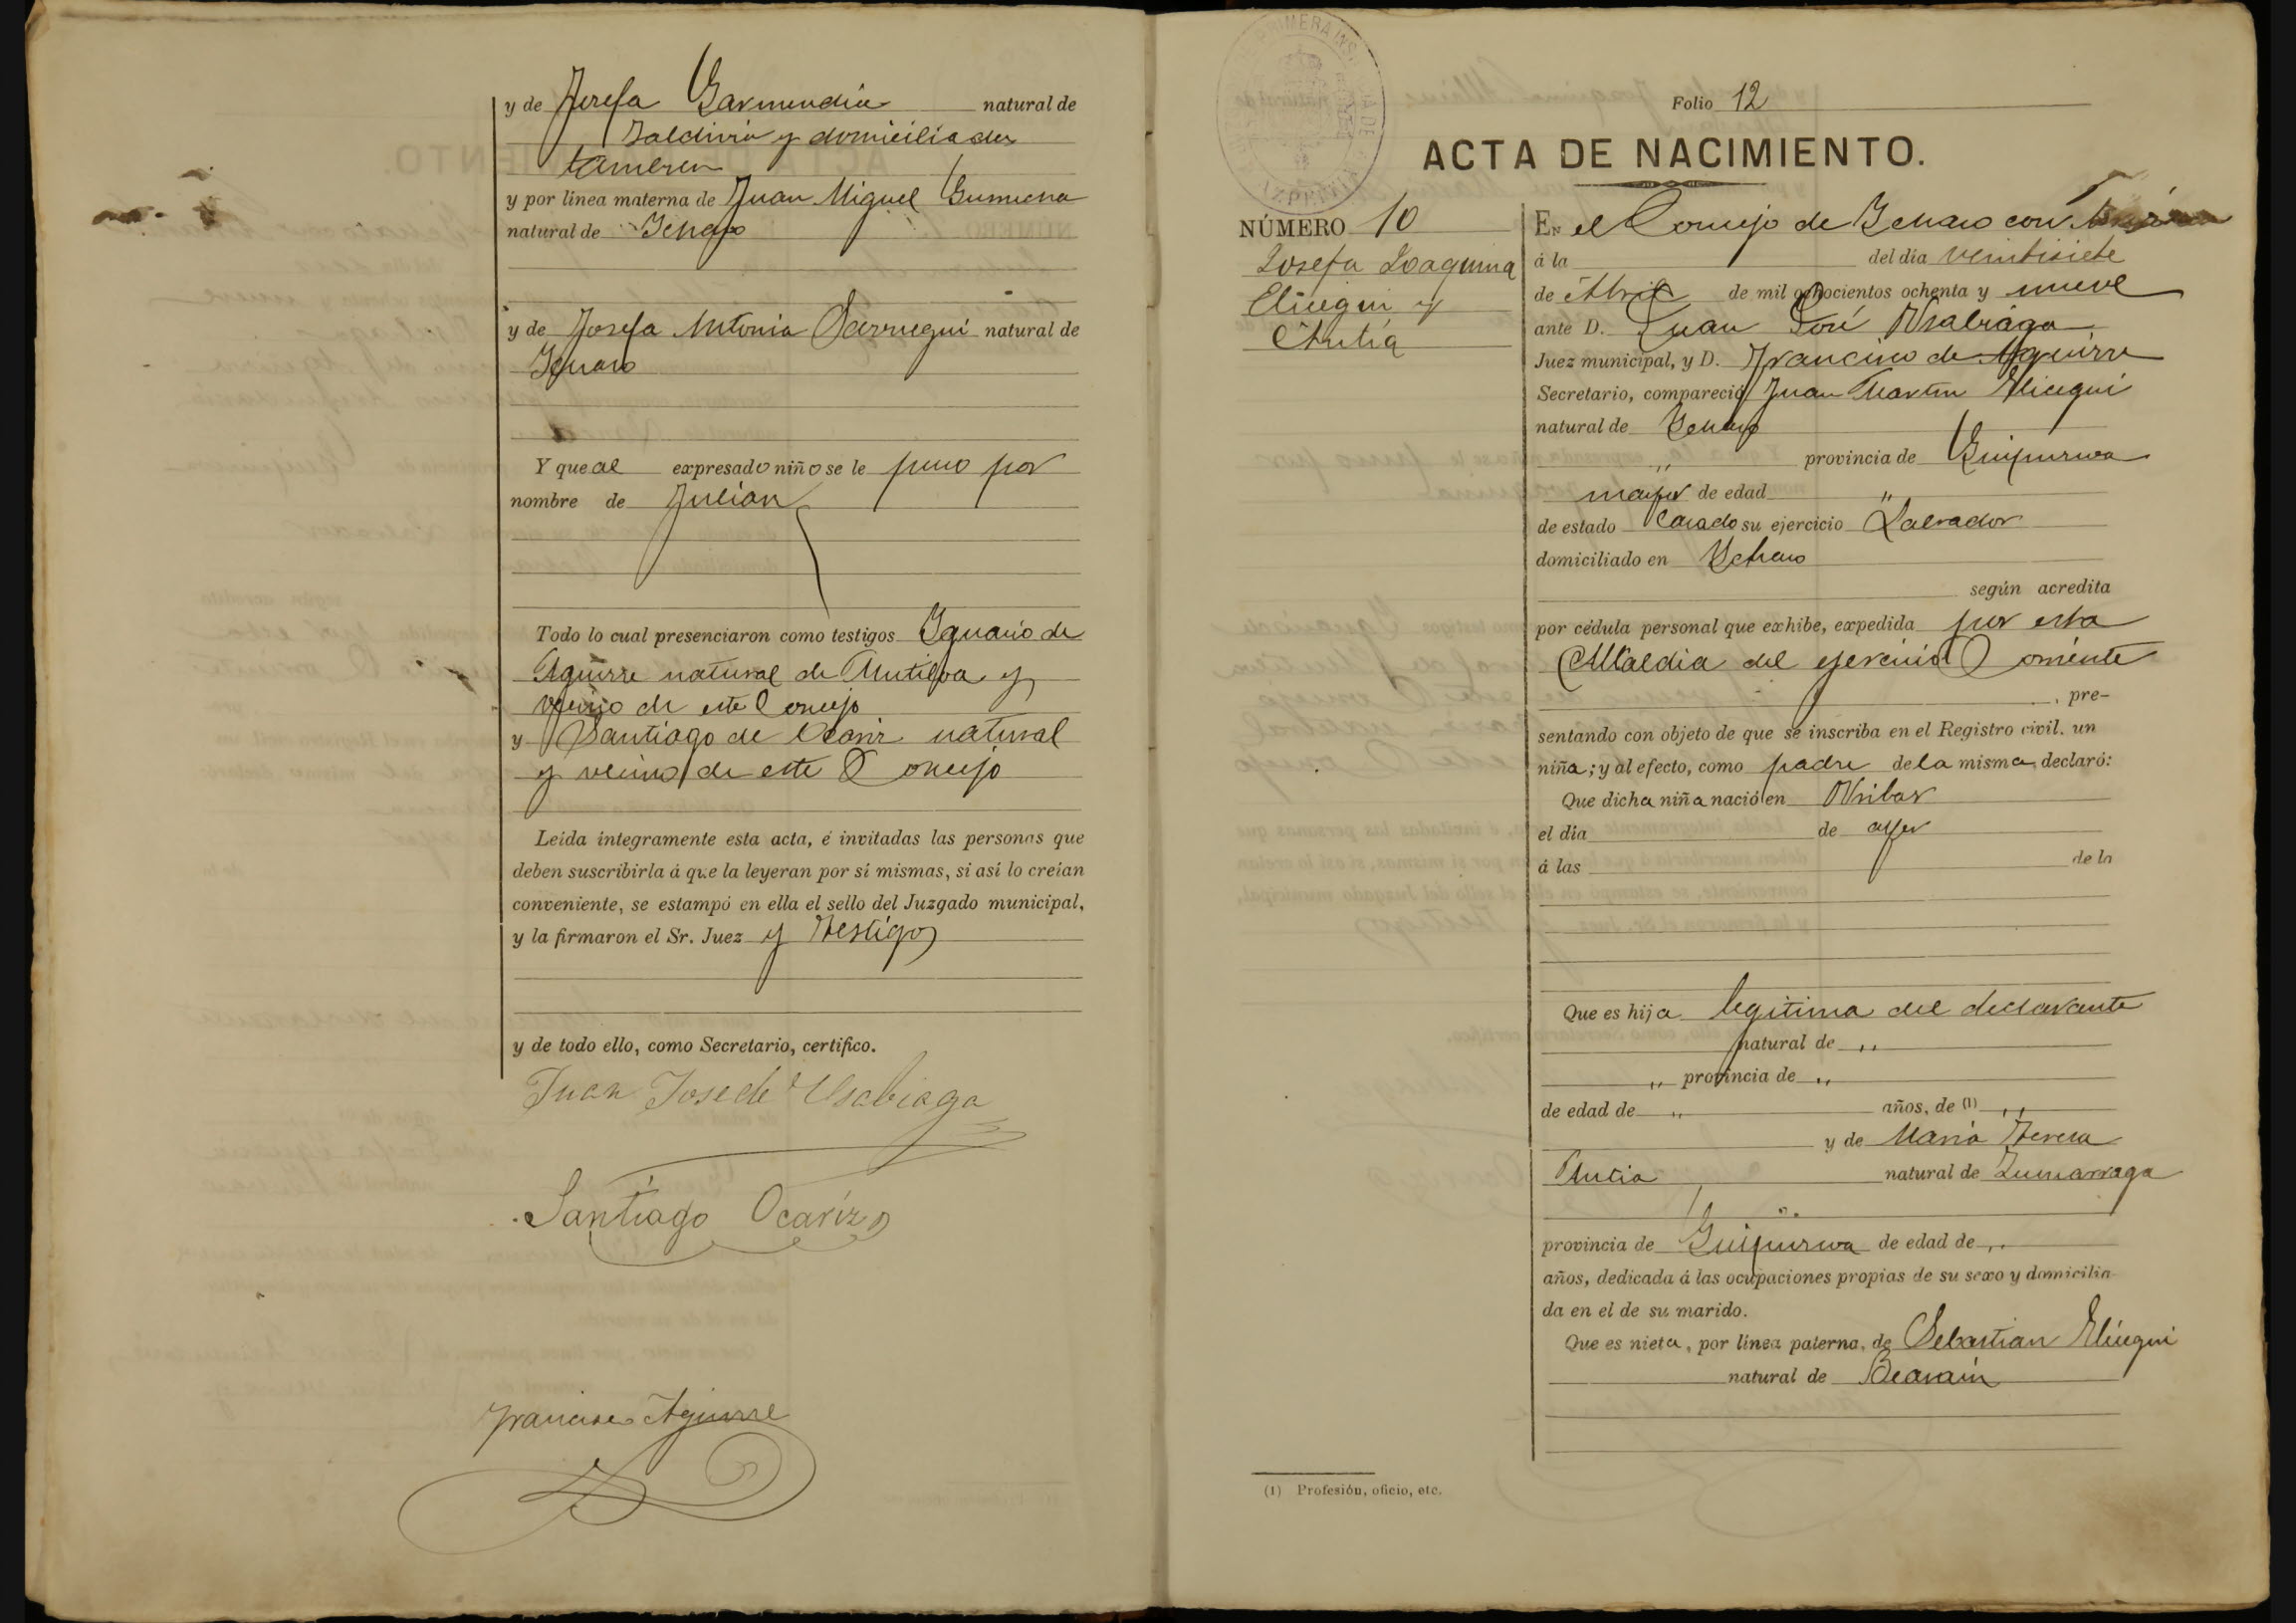 y de Josefa Garmendia natural de
Zaldivia y domiciliados
tambien
y por linea materna de Juan Miguel
natural de Ichaso
y de Josefa Antonia Sarriegui natural de
Ichaso
Y que al expresado niño se le puso por
nombre de Julian
Todo lo cual presenciaron como testigos Ignacio de
Aguirre natural de Mutiloa y
vecino de este Concejo
y Santiago de Ocariz natural
y vecino de este Concejo
Leída íntegramente esta acta, é invitadas las personas que
deben suscribirla á que la leyeran por sí mismas, si así lo creían
conveniente, se estampó en ella el sello del Juzgado municipal,
y la firmaron el Sr. Juez y testigos
y de todo ello, como Secretario, certifico.
Juan Jose de Usabiaga
Santiago Ocariz
Francisco Aguirre
Folio 12
ACTA DE NACIMIENTO.
NÚMERO 10
Josefa Joaquina
Elicegui y
Antia
En el Concejo de Ichaso con
á la del día veintisiete
de Abril de mil ochocientos ochenta y nueve
ante D. Juan José Usabiaga
Juez municipal, y D. Francisco de Aguirre
Secretario, compareció Juan Martin Elicegui
natural de Ichaso
" provincia de Guipuzcoa
mayor de edad "
de estado Casado su ejercicio Labrador
domiciliado en Ichaso
según acredita
por cédula personal que exhibe, expedida por esta
Alcaldia del ejercicio Corriente
, pre-
sentando con objeto de que se inscriba en el Registro civil, un
niña; y al efecto, como padre de la misma, declaró:
Que dicha niña nació en
el día de ayer
á las de la
Que es hija legitima del declarante
natural de "
" provincia de "
de edad de " años, de (1) "
y de Maria Teresa
Antia natural de Zumarraga
"
provincia de Guipuzcoa de edad de "
años, dedicada á las ocupaciones propias de su sexo y domicilia-
da en el de su marido.
Que es nieta, por línea paterna, de Sebastian Elicegui
natural de Beasain
(1) Profesión, oficio, etc.